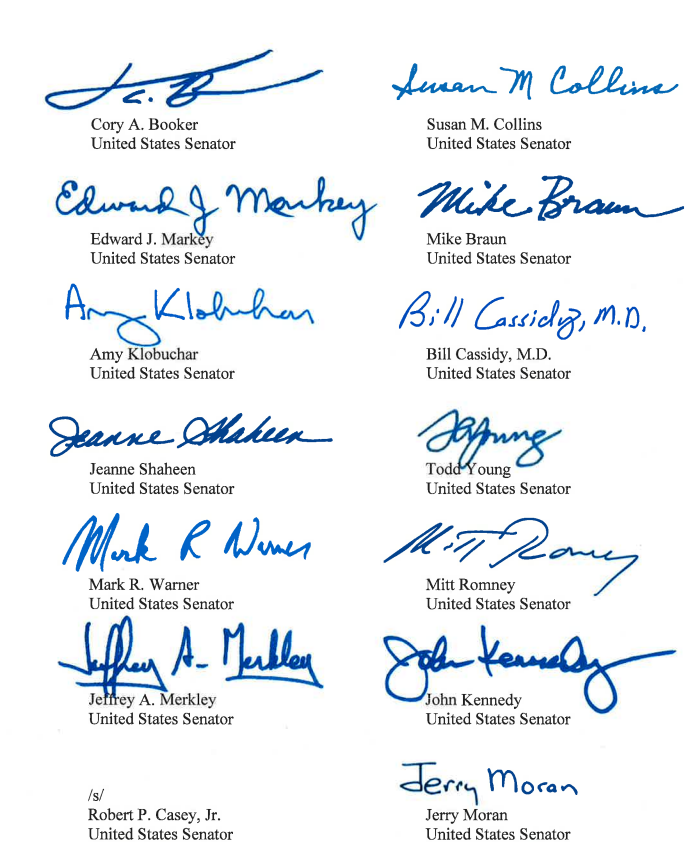 Cory A. Booker
United States Senator
Susan M Collins
Susan M. Collins
United States Senator
Edward J Markey
Edward J. Markey
United States Senator
Mike Braun
Mike Braun
United States Senator
Amy Klobuchar
Amy Klobuchar
United States Senator
Bill Cassidy, M.D.
Bill Cassidy, M.D.
United States Senator
Jeanne Shaheen
Jeanne Shaheen
United States Senator
Young
Todd Young
United States Senator
Mark R Warner
Mark R. Warner
United States Senator
Mitt Romney
Mitt Romney
United States Senator
Jeffrey A. Merkley
Jeffrey A. Merkley
United States Senator
John Kennedy
John Kennedy
United States Senator
/s/
Robert P. Casey, Jr.
United States Senator
Jerry Moran
Jerry Moran
United States Senator